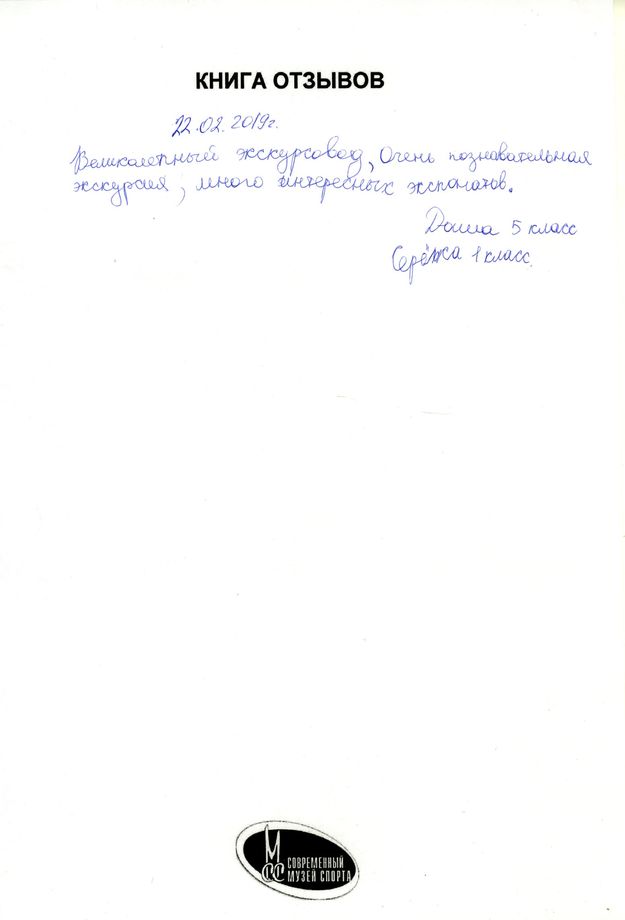 КНИГА ОТЗЫВОВ
22.02.2019г.
Великолепный экскурсовод, Очень познавательная
экскурсия, много интересных экспонатов.
Даша 5 класс
Серёжа 1 класс.
М
СС СОВРЕМЕННЫЙ
МУЗЕЙ СПОРТА